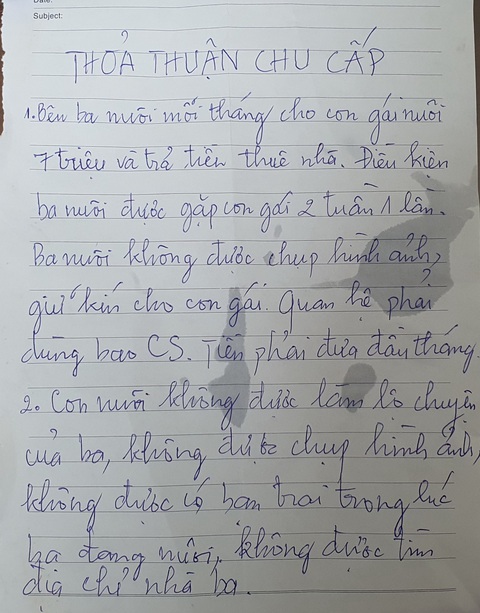 Subject:
THOẢ THUẬN CHU CẤP
1. Bên ba nuôi mỗi tháng cho con gái nuôi
7 triệu và trả tiền thuê nhà. Điều kiện
ba nuôi được gặp con gái 2 tuần 1 lần.
Ba nuôi không được chụp hình ảnh,
giữ kín cho con gái. Quan hệ phải
dùng bao CS. Tiền phải đưa đầu tháng.
2. Con nuôi không được làm lộ chuyện
của ba, không được chụp hình ảnh,
không được có bạn trai trong lúc
ba đang nuôi, không được tìm
địa chỉ nhà ba.